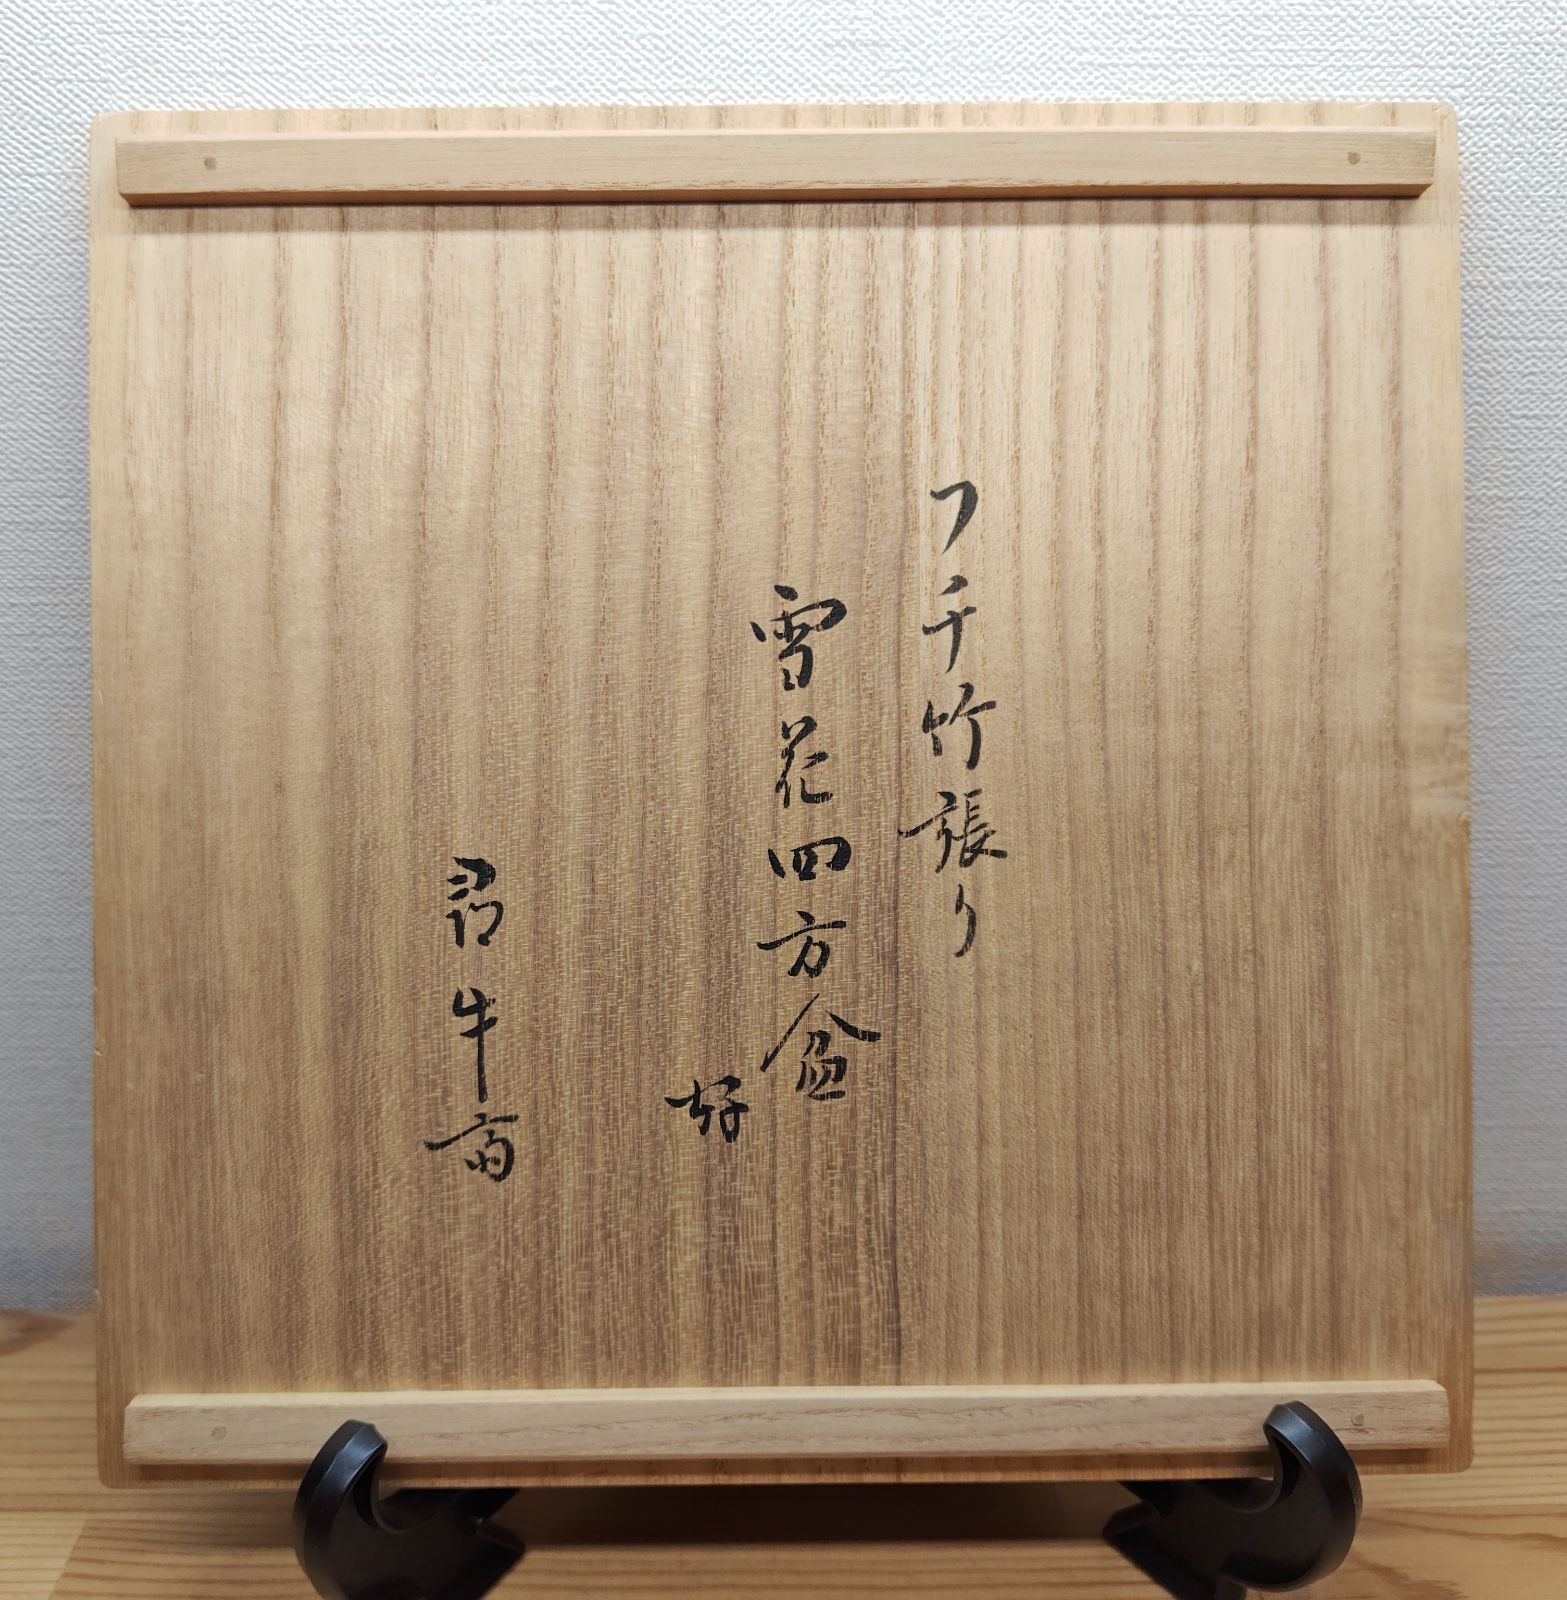 フチ竹張り
雪花四方盆
好
尋牛斎